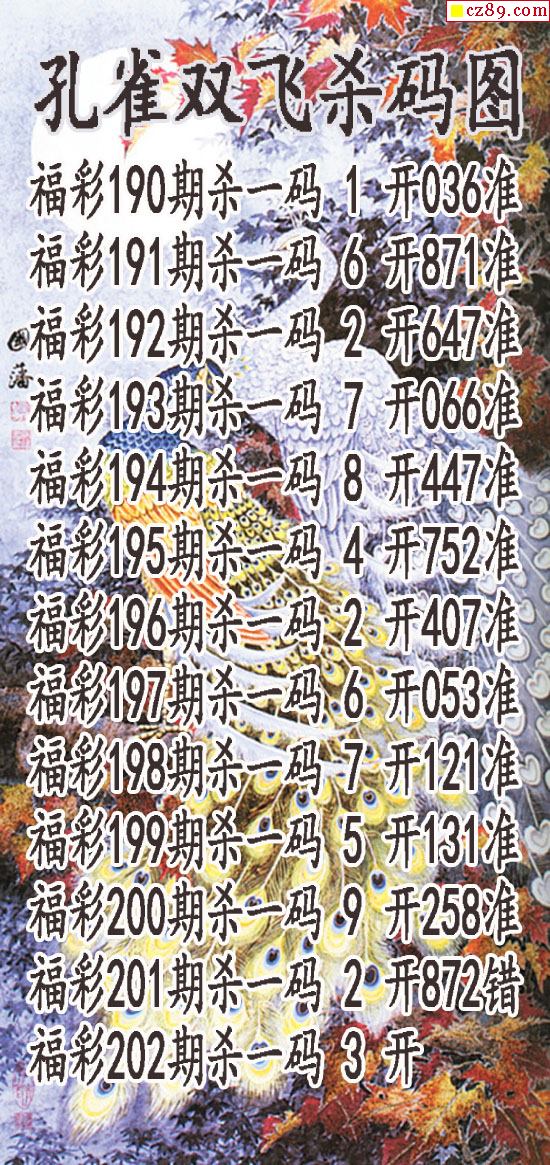 cz89.com
孔雀双飞杀码图
福彩190期杀一码 1 开036准
福彩191期杀一码 6 开871准
福彩192期杀一码 2 开647准
福彩193期杀一码 7 开066准
福彩194期杀一码 8 开447准
福彩195期杀一码 4 开752准
福彩196期杀一码 2 开407准
福彩197期杀一码 6 开053准
福彩198期杀一码 7 开121准
福彩199期杀一码 5 开131准
福彩200期杀一码 9 开258准
福彩201期杀一码 2 开872错
福彩202期杀一码 3 开
國藩